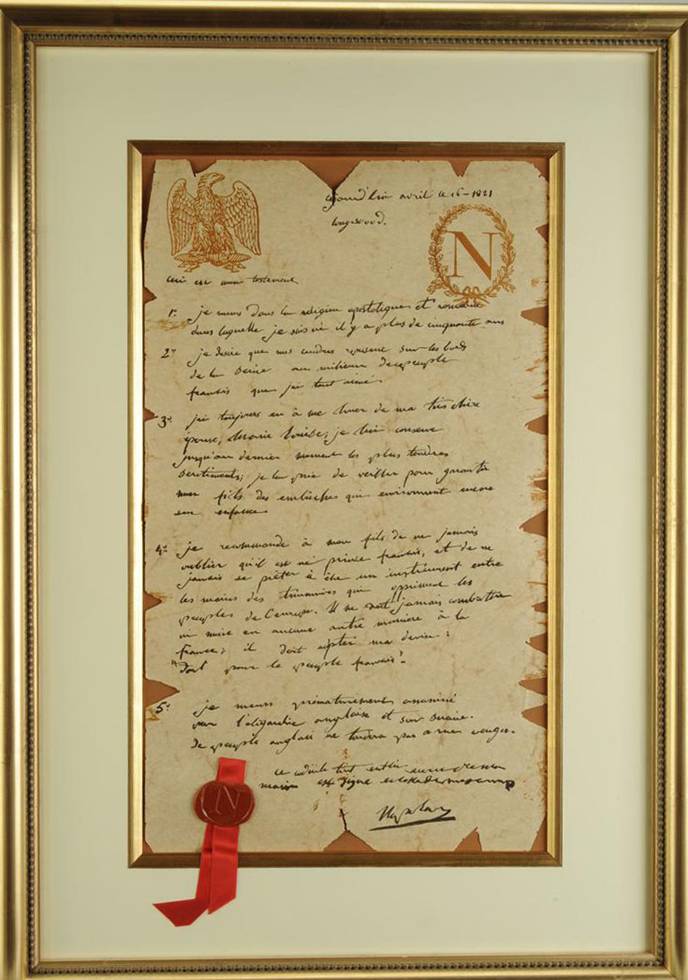 aujourd'hui avril le 16 - 1821
Longwood.
N
ceci est mon testament
1º. je meurs dans la religion apostolique et romaine
dans laquelle je suis né il y a plus de cinquante ans
2º je desire que mes cendres reposent sur les bords
de la Seine au milieu de ce peuple
français que j'ai tant aimé.
3º. j'ai toujours eu à me louer de ma très chère
épouse, Marie Louise; je lui conserve
jusqu'au dernier moment les plus tendres
sentiments; je la prie de veiller pour garantir
mon fils des embûches qui environnent encore
son enfance
4º. je recommande à mon fils de ne jamais
oublier qu'il est né prince français, et de ne
jamais se prêter à être un instrument entre
les mains des triumvirs qui oppriment les
peuples de l'europe. Il ne doit jamais combattre
ni nuire en aucune autre manière à la
france; il doit adopter ma devise:
"Tout pour le peuple français".
5º. je meurs prématurement, assassiné
par l'oligarchie anglaise et son sicaire.
le peuple anglais ne tardera pas à me venger.
ce codicile tout entier
main est signé
Napoleon
N